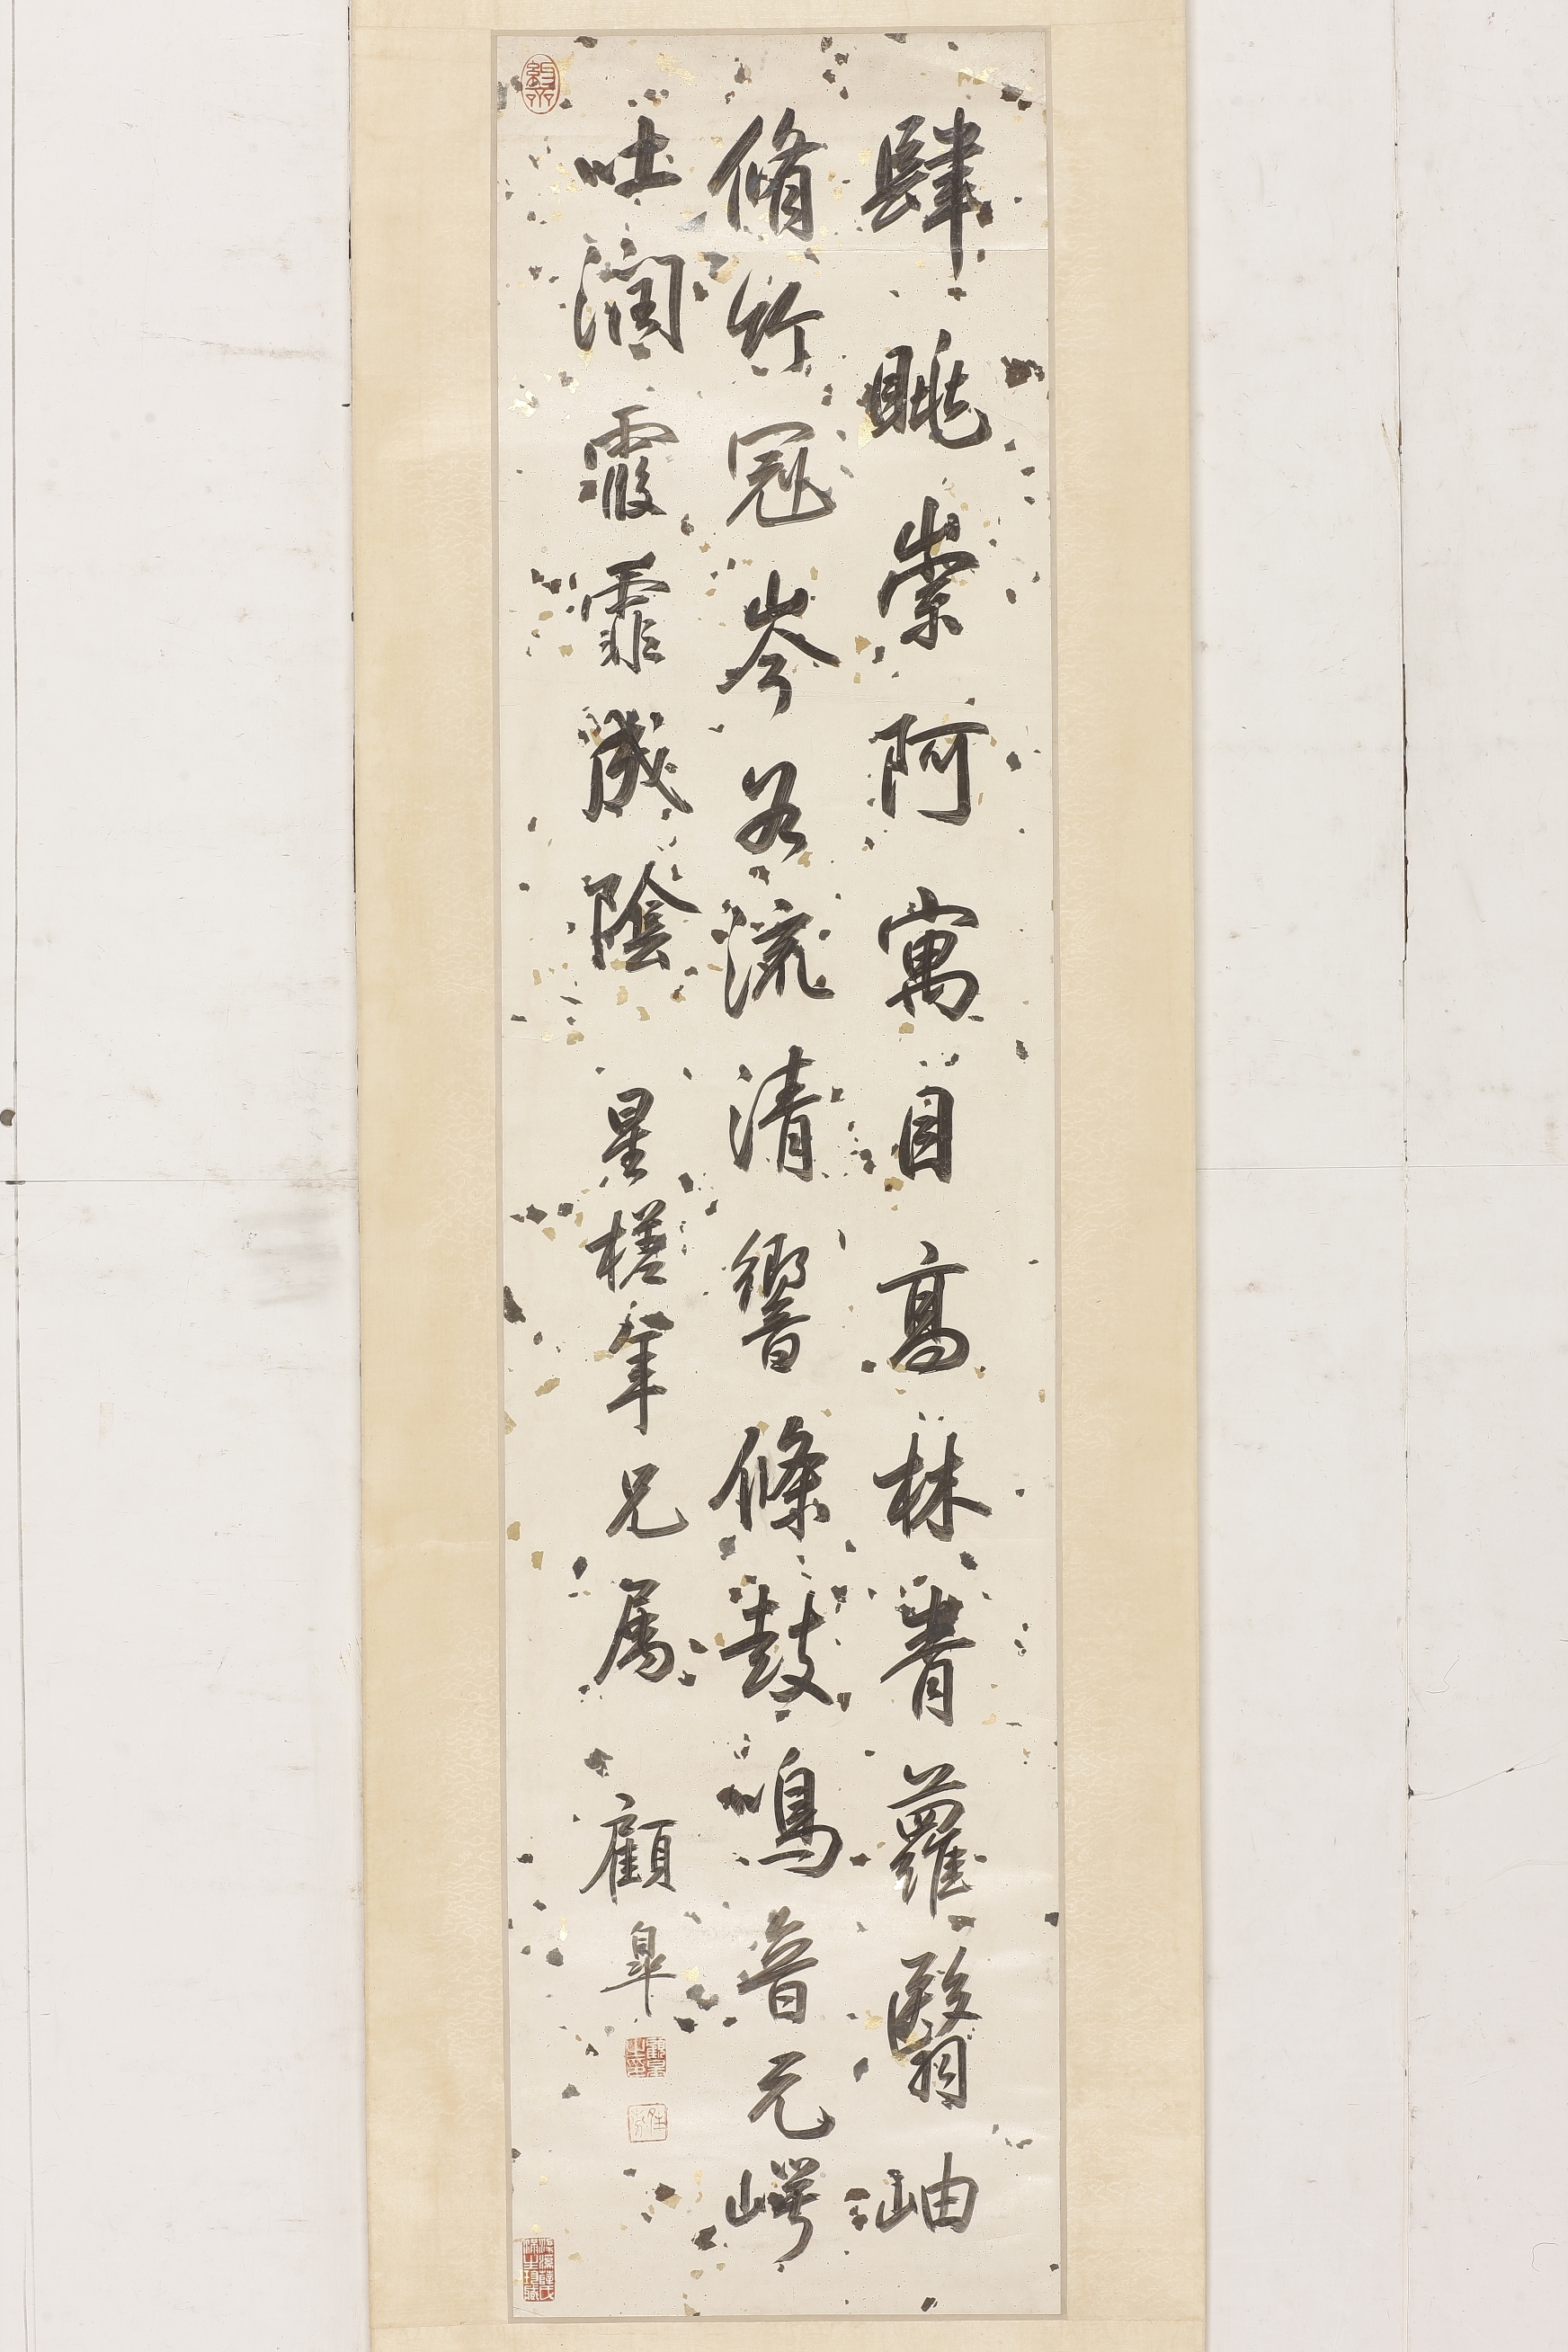 肆眺崇阿寓目高林青蘿翳岫
脩竹冠岑谷流清響條鼓鳴音元崿
吐潤霞霏成陰 星槎年兄属 顧皋
顧皋之印